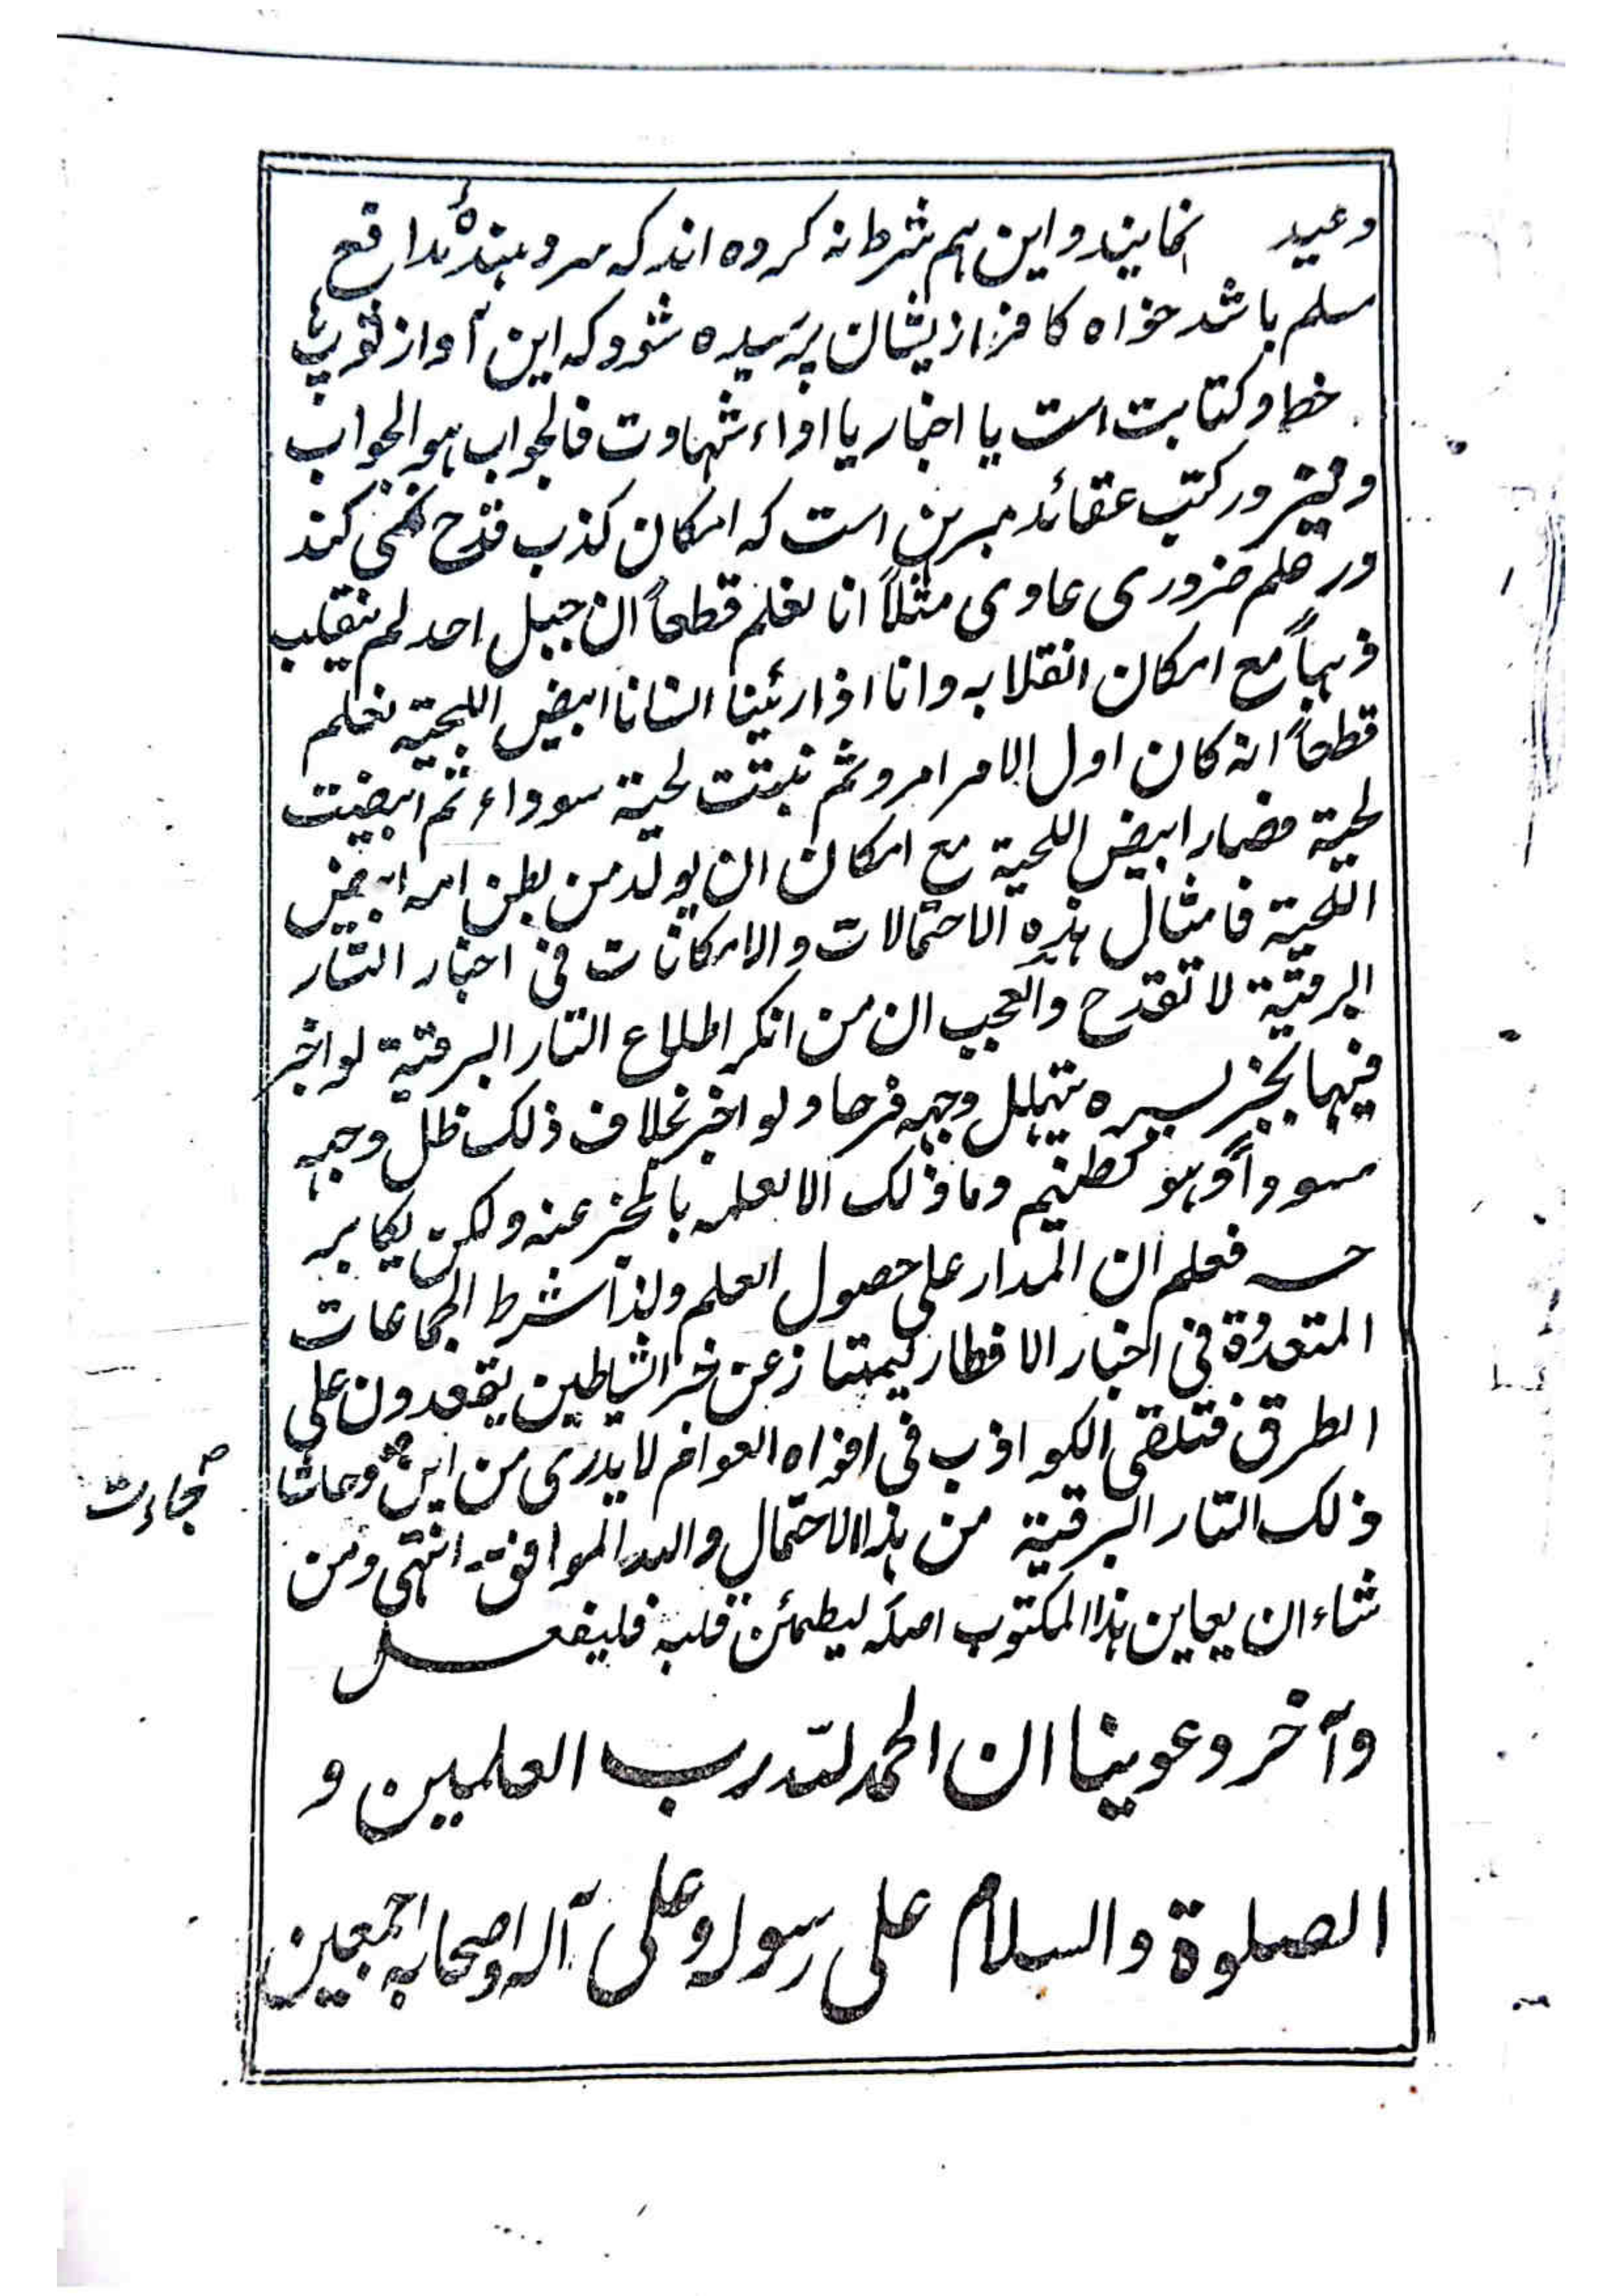 وعید نمایند و این هم شرط نه کرده اند که سر دهندهٔ مدافع
مسلم باشد خواه کافر از یشان پرسیده شود که این آواز توپ ہا
خط و کتابت است یا اخبار یا اداء شهادت فالجواب هو الجواب
و نیز در کتب عقائد مبرهن است که امکان کذب قدح نمی کند
در علم ضروری عادی مثلاً انا نعلم قطعاً ان جبل احد لم ینقلب
ذهباً مع امکان انقلابه وانا اذا رئینا انسانا ابیض اللحیة نعلم
قطعاً انه کان اول الامر امرد ثم نبتت لحیة سوداء ثم ابیضت
لحیة فصار ابیض اللحیة مع امکان ان یولد من بطن امه ابیض
اللحیة فامثال هذه الاحتمالات والامکانات فی اخبار التار
البرقیة لا تقدح والعجب ان من انکر اطلاع التار البرقیة لو اخبر
فیها بخبر یسره یتهلل وجهه فرحا ولو اخبر بخلاف ذلک ظل وجهه
مسوداً وهو کظیم وما ذلک الا لعلمه بالمخبر عنه ولکن یکابر
حسه فعلم ان المدار علی حصول العلم ولذا شرط الجماعات
المتعددة فی اخبار الافطار لیمتاز عن خبر الشیاطین یقعدون علی
الطرق فتلقی الکواذب فی افواه العوام لا یدری من این وحاشا
جاءت
ذلک التار البرقیة من هذا الاحتمال والله الموافق۔ انتهی ومن
شاء ان یعاین هذا المکتوب اصله لیطمئن قلبه فلیفعل
وآخر دعوینا ان الحمد لله رب العلمین و
الصلوة والسلام علی رسوله وعلی آله واصحابه اجمعین